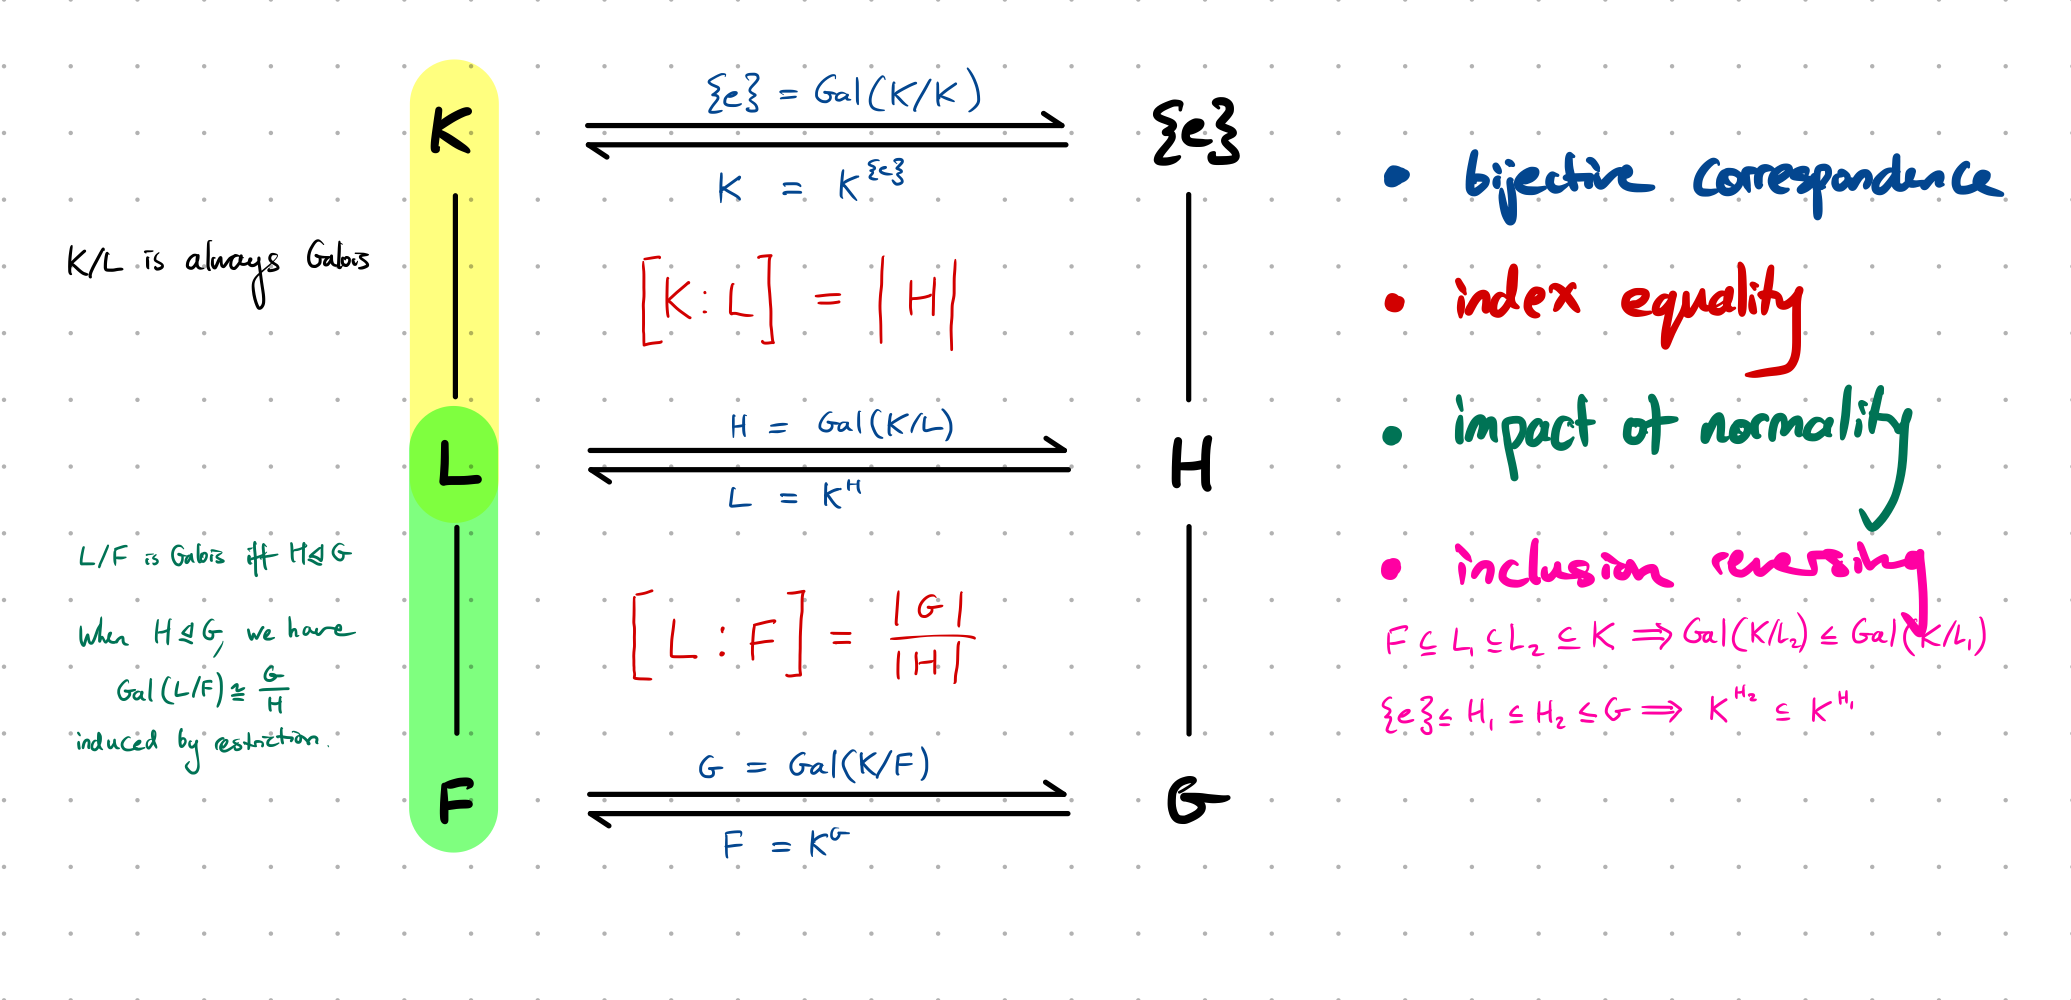 {e} = Gal(K/K)
K {e}
K = K^{e}
K/L is always Galois
[K:L] = |H|
H = Gal(K/L)
L H
L = K^H
L/F is Galois iff H⊴G
When H⊴G, we have
Gal(L/F) ≅ G/H
induced by restriction.
[L:F] = |G|/|H|
G = Gal(K/F)
F G
F = K^G
• bijective correspondence
• index equality
• impact of normality
• inclusion reversing
F ⊆ L₁ ⊆ L₂ ⊆ K ⟹ Gal(K/L₂) ≤ Gal(K/L₁)
{e} ≤ H₁ ≤ H₂ ≤ G ⟹ K^H₂ ⊆ K^H₁